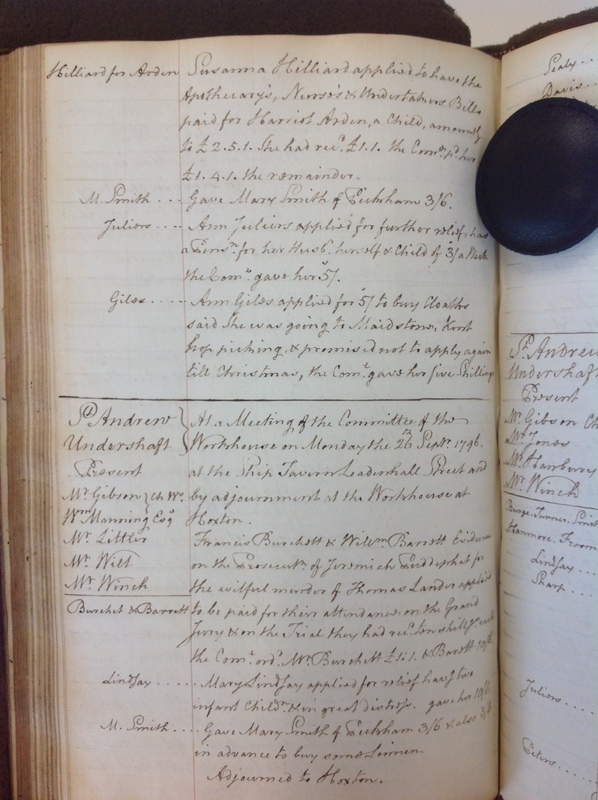 Hilliard for Arden Susanna Hilliard applied to have the
Apothecary's, Nurse's & Undertakers Bills
paid for Harriot Arden, a Child, amountg
to £2.5.1. She had recd. £1.1. the Come. pd. her
£1.4.1. the remainder.
M. Smith ... Gave Mary Smith of Peckham 3/6.
Juliers .... Ann Juliers applied for further relief, has
a Pensn. for her Husb. herself & Child of 3/ a Week
the Come. gave her 5/.
Giles .... Ann Giles applied for 5/ to buy Cloaths
said She was going to Maidstone, Kent
hop picking & promised not to apply again
till Christmas, the Come. gave her five Shillings
St. Andrew
Undershaft
Present
Mr. Gibson } Ch Wn.
Wm. Manning Esq
Mr. Littler
Mr. Wiet
Mr. Winch
At a Meeting of the Committee of the
Workhouse on Monday the Septr. 1796.
at the Ship Tavern Leadenhall Street and
by adjournment at the Workhouse at
Hoxton.
Burchet & Barrett
Francis Burchett & Willm. Barrett Evidences
on the Prosecutn. of Jeremiah for
the wilful murder of Thomas Lander applied
to be paid for their attendance on the Grand
Jury & on the Trial they had recd. ten shillgs. each
the Come. ordd. Mr. Burchett £1:1. & Barett 10/6.
Lindsay ..... Mary Lindsay applied for relief has two
infant Childn. & in great distress. gave her 10/6
M. Smith .... Gave Mary Smith of Peckham 3/6 & also
in advance to buy some Linnen.
Adjourned to Hoxton.
Sealy ..
Davis ..
St. Andrew
Undershaft
Present
Mr. Gibson Ch
Mr. Jones
Mr. Hanbury
Mr. Winch
Lindsay ....
Sharp ....
Juliers ....
Peters ....